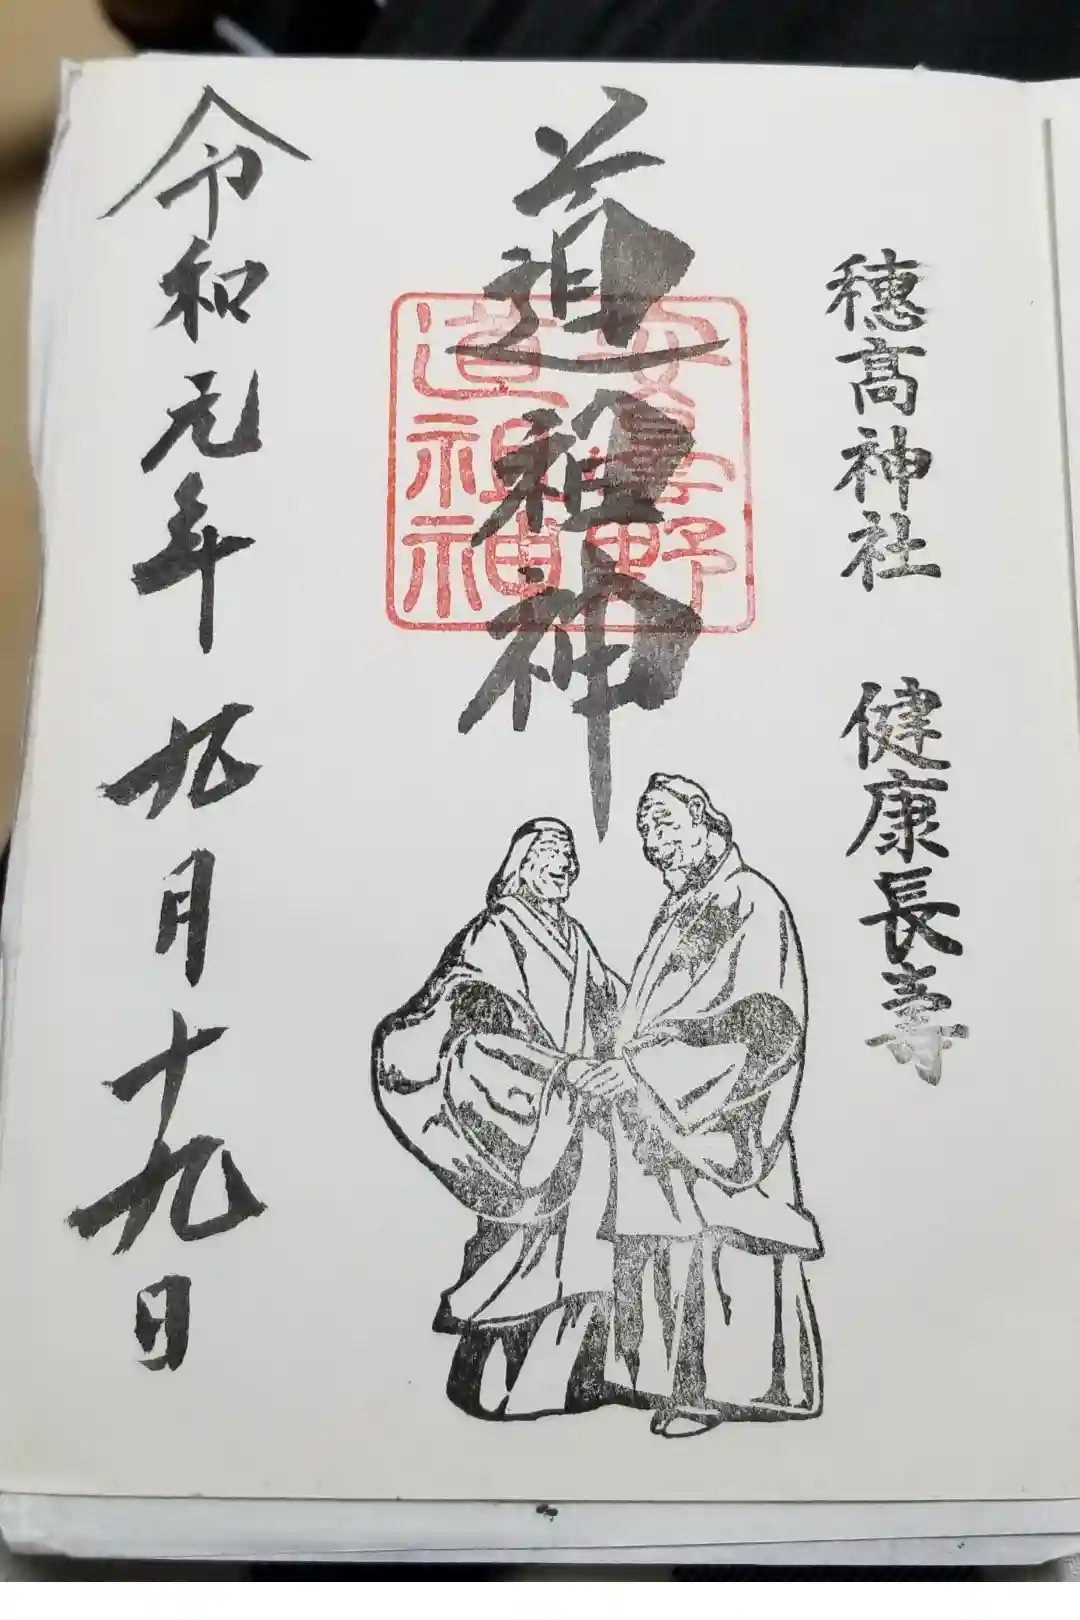 穂高神社 健康長寿
道祖神
安曇野
道祖神
令和元年 九月十九日